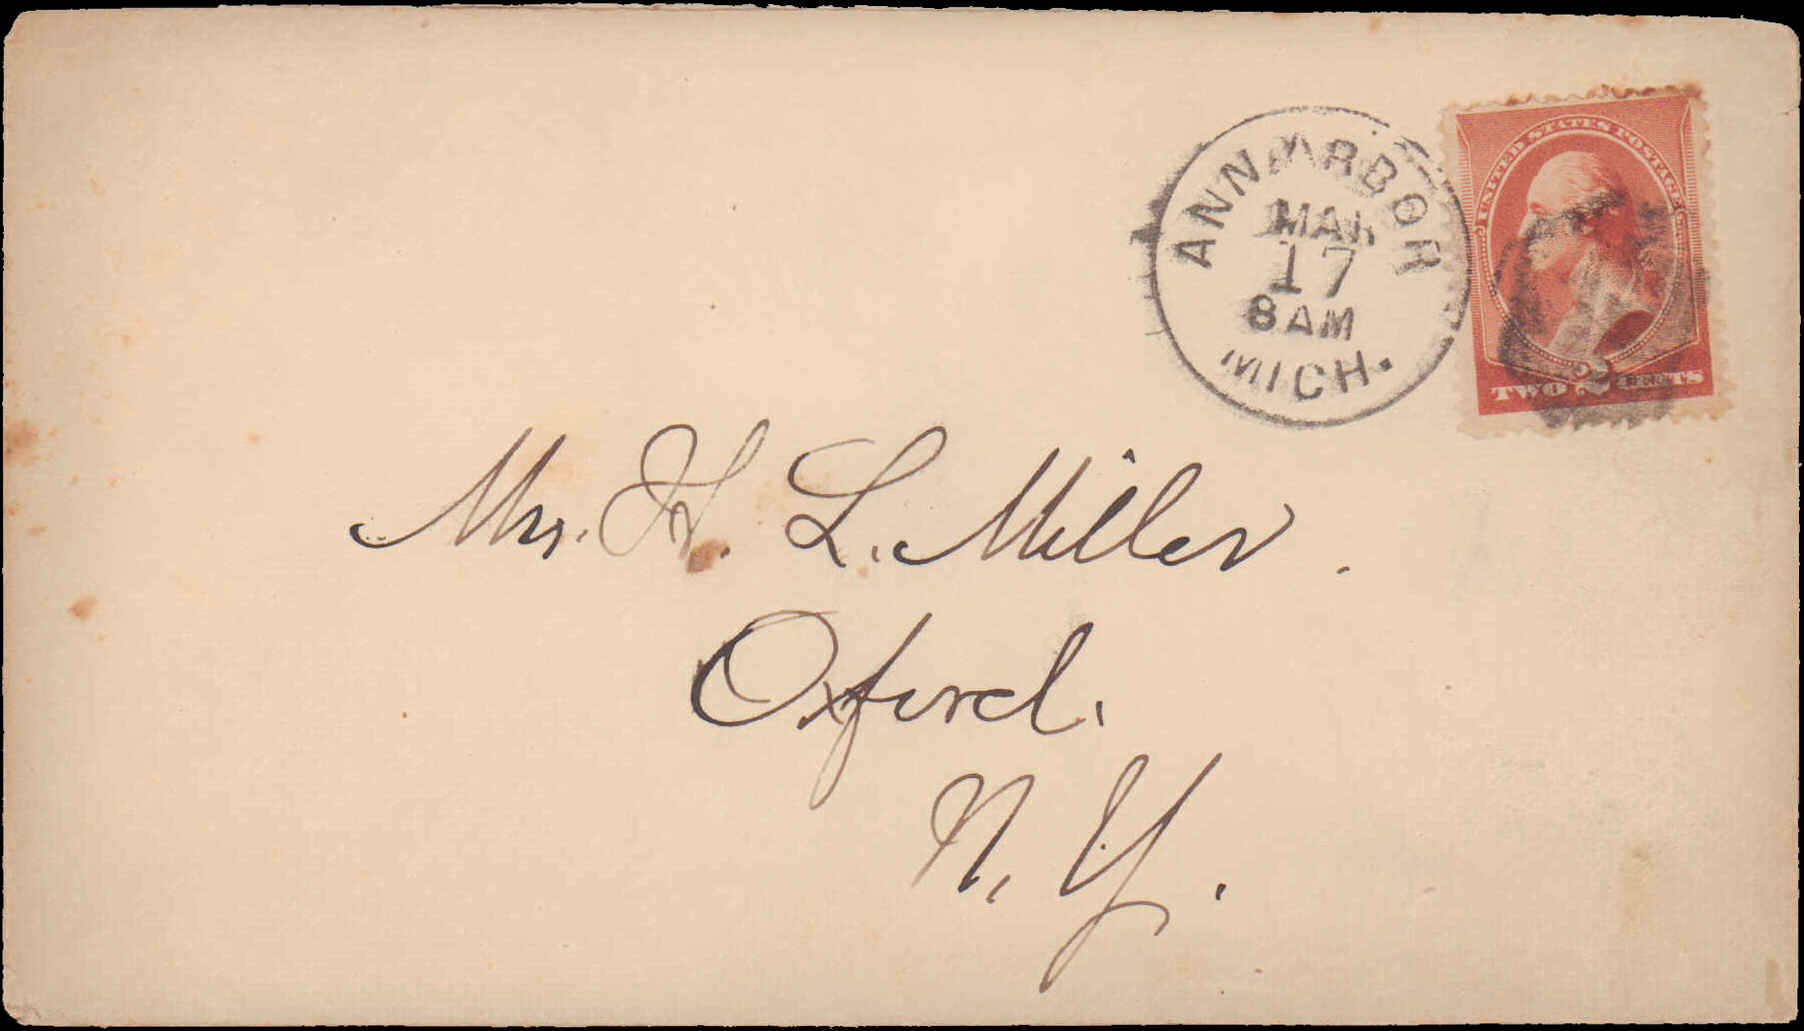 ANN ARBOR
MAR
17
8 AM
MICH.
UNITED STATES POSTAGE
TWO 2 CENTS
Mrs. H. L. Miller.
Oxford.
N. Y.